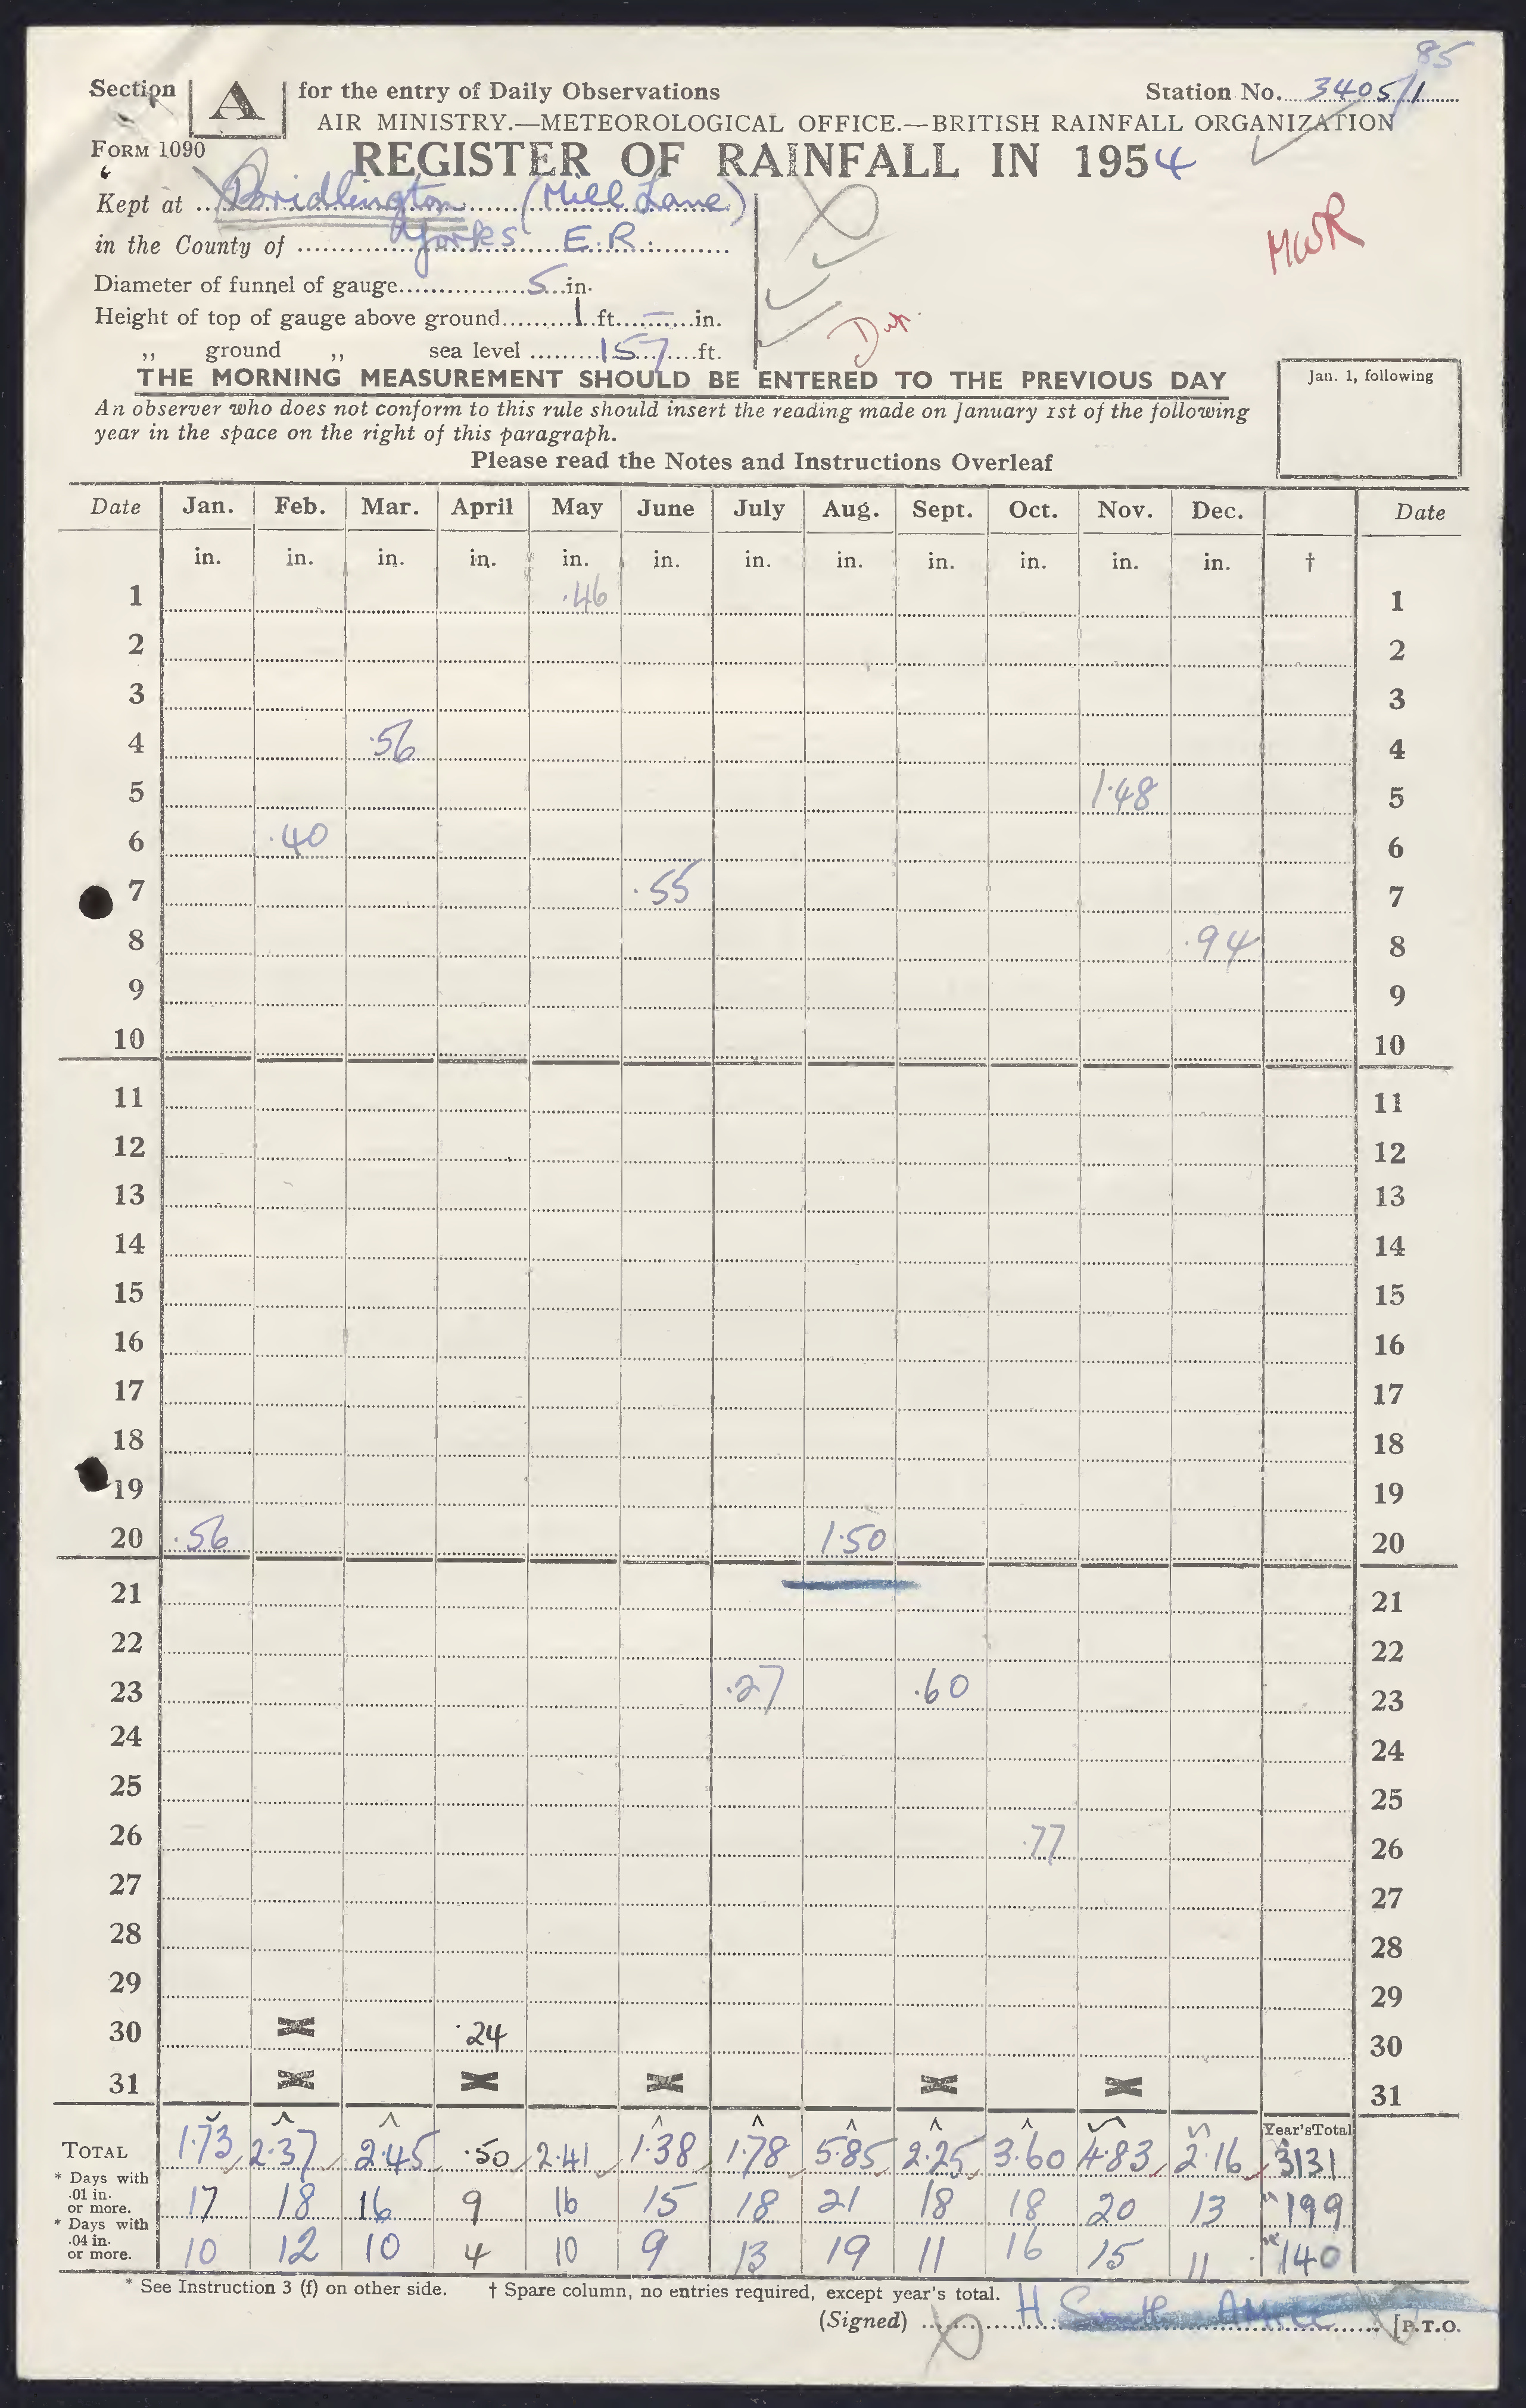 85
Section A for the entry of Daily Observations Station No. 3405/1
AIR MINISTRY.—METEOROLOGICAL OFFICE.—BRITISH RAINFALL ORGANIZATION
FORM 1090 REGISTER OF RAINFALL IN 1954
Kept at Bridlington (Mill Lane)
in the County of Yorks E.R.
MWR
Diameter of funnel of gauge 5 in.
Height of top of gauge above ground 1 ft. — in.
,, ground ,, sea level 157 ft.
THE MORNING MEASUREMENT SHOULD BE ENTERED TO THE PREVIOUS DAY
Jan. 1, following
An observer who does not conform to this rule should insert the reading made on January 1st of the following
year in the space on the right of this paragraph.
Please read the Notes and Instructions Overleaf
Date Jan. Feb. Mar. April May June July Aug. Sept. Oct. Nov. Dec. Date
in. in. in. in. in. in. in. in. in. in. in. in. †
1 .46 1
2 2
3 3
4 .56 4
5 1.48 5
6 .40 6
7 .55 7
8 .94 8
9 9
10 10
11 11
12 12
13 13
14 14
15 15
16 16
17 17
18 18
19 19
20 .56 1.50 20
21 21
22 22
23 .27 .60 23
24 24
25 25
26 .77 26
27 27
28 28
29 29
30 .24 30
31 31
Year's Total
TOTAL 1.73 2.37 2.45 .50 2.41 1.38 1.78 5.85 2.25 3.60 4.83 2.16 3131
* Days with .01 in. or more. 17 18 16 9 16 15 18 21 18 18 20 13 199
* Days with .04 in. or more. 10 12 10 4 10 9 13 19 11 16 15 11 140
* See Instruction 3 (f) on other side. † Spare column, no entries required, except year's total.
(Signed) H [P.T.O.